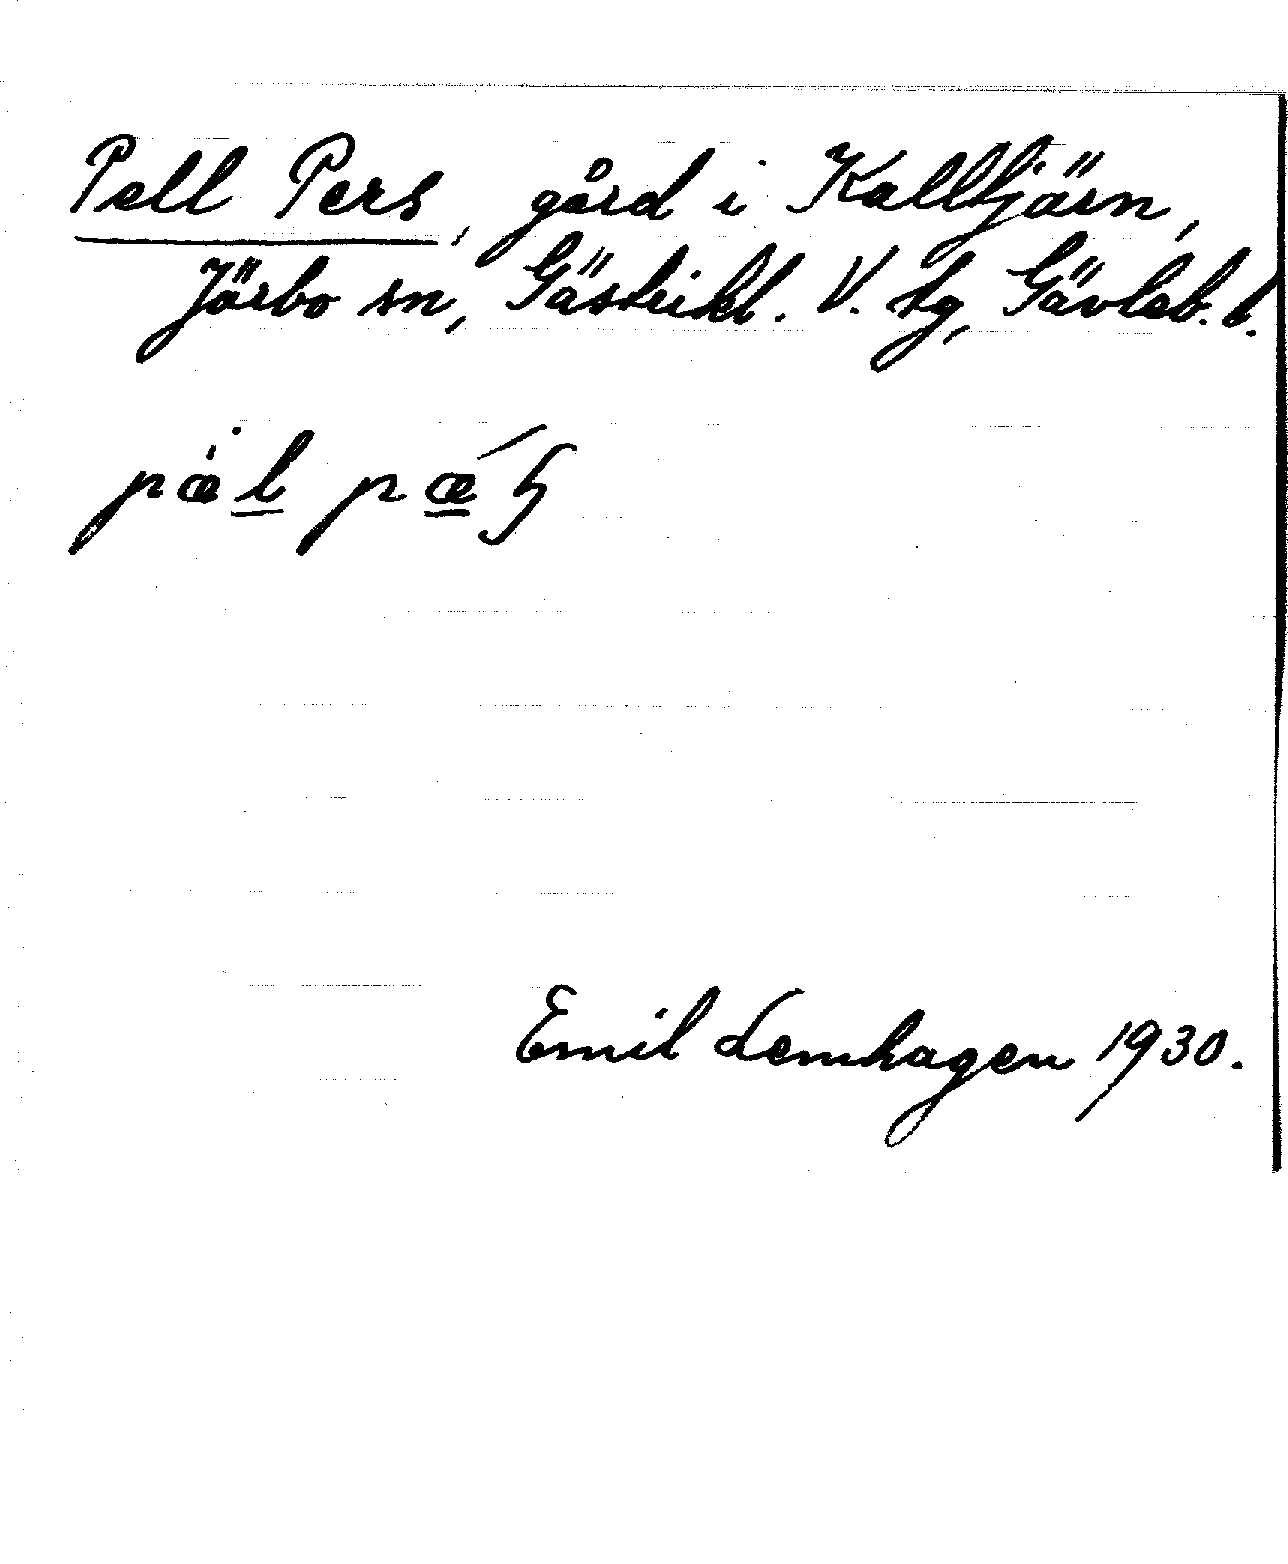 Pell Pers, gård i Kalltjärn,
Järbo sn, Gästrikl. V. tg, Gävleb. l.
pæ̀l pǽʂ
Emil Lemhagen 1930.